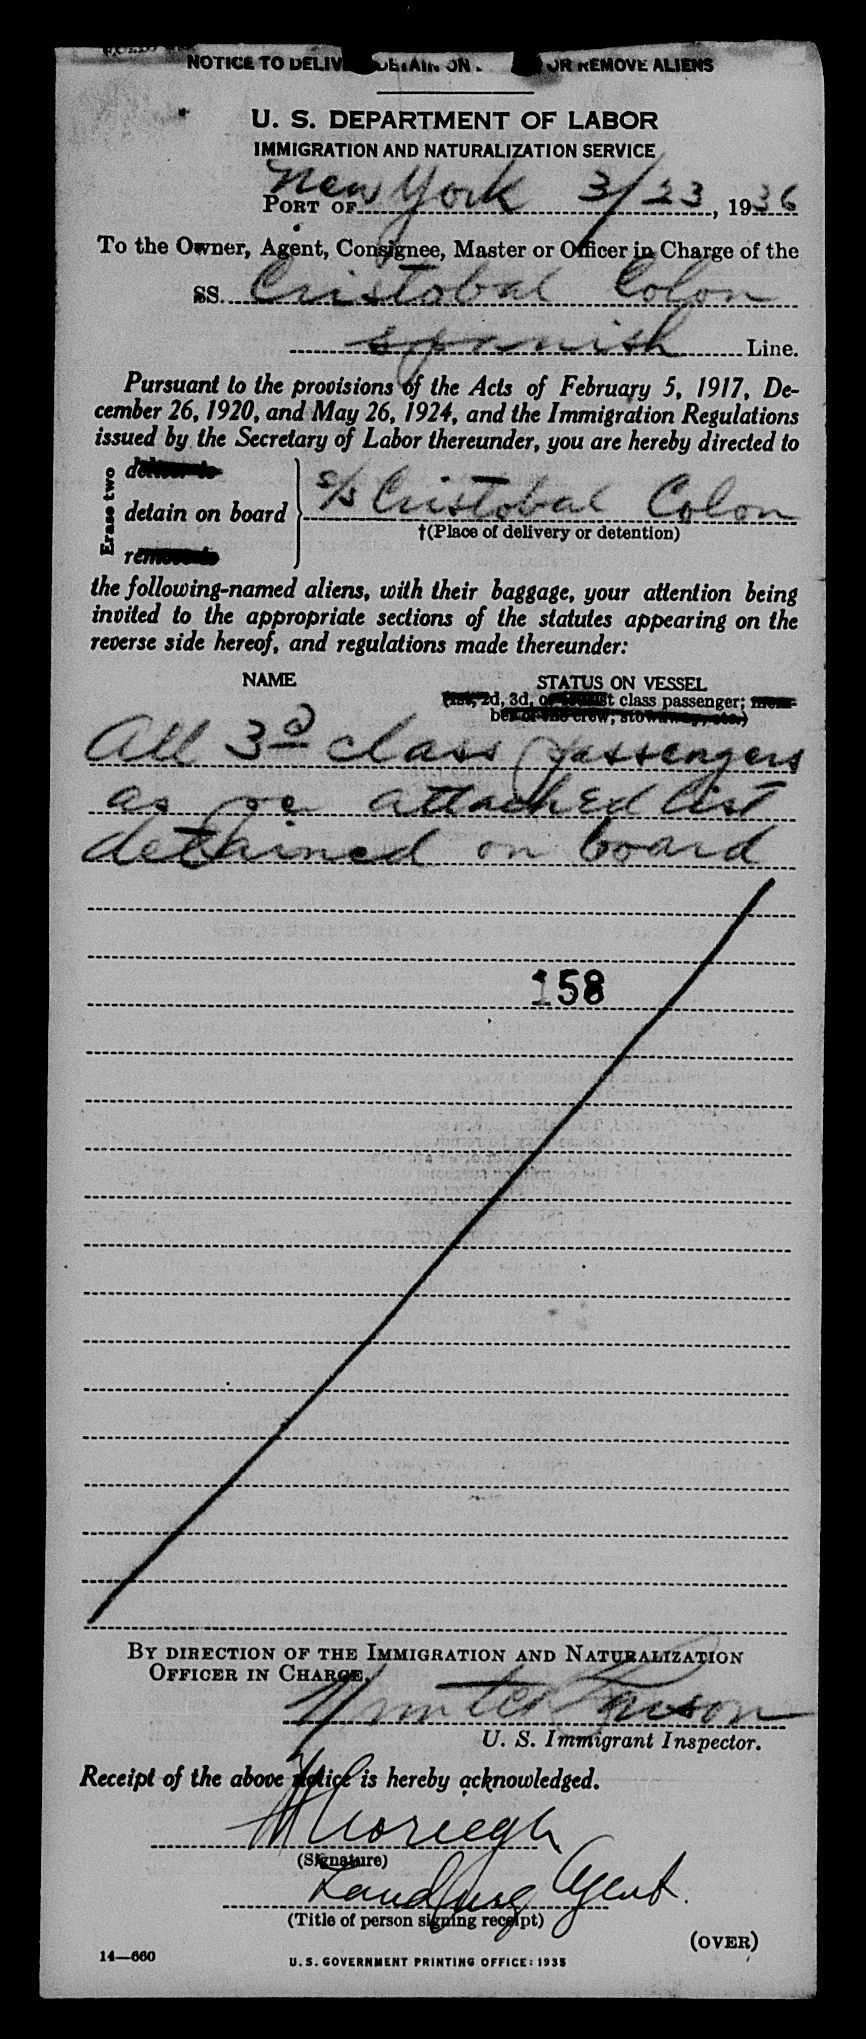 NOTICE TO DELIVER, DETAIN ON OR REMOVE ALIENS
U. S. DEPARTMENT OF LABOR
IMMIGRATION AND NATURALIZATION SERVICE
PORT OF New York 3/23, 1936
To the Owner, Agent, Consignee, Master or Officer in Charge of the
SS. Cristobal Colon
Spanish Line.
Pursuant to the provisions of the Acts of February 5, 1917, De-
cember 26, 1920, and May 26, 1924, and the Immigration Regulations
issued by the Secretary of Labor thereunder, you are hereby directed to
Erase two
deliver to
detain on board
remove to
s/s Cristobal Colon
†(Place of delivery or detention)
the following-named aliens, with their baggage, your attention being
invited to the appropriate sections of the statutes appearing on the
reverse side hereof, and regulations made thereunder:
NAME STATUS ON VESSEL
(1st, 2d, 3d, or tourist class passenger; mem-
ber of the crew; stowaway, etc.)
All 3d class passengers
as per attached list
detained on board
158
BY DIRECTION OF THE IMMIGRATION AND NATURALIZATION
OFFICER IN CHARGE,
U. S. Immigrant Inspector.
Receipt of the above notice is hereby acknowledged.
(Signature)
Landing Agent.
(Title of person signing receipt)
(OVER)
14—660
U. S. GOVERNMENT PRINTING OFFICE: 1935